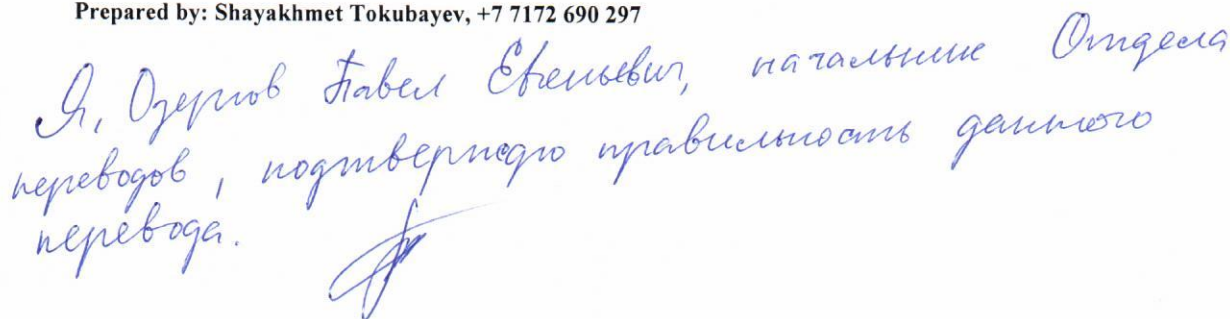 Prepared by: Shayakhmet Tokubayev, +7 7172 690 297
Я, Озернов Павел Евгеньевич, начальник Отдела
переводов, подтверждаю правильность данного
перевода.